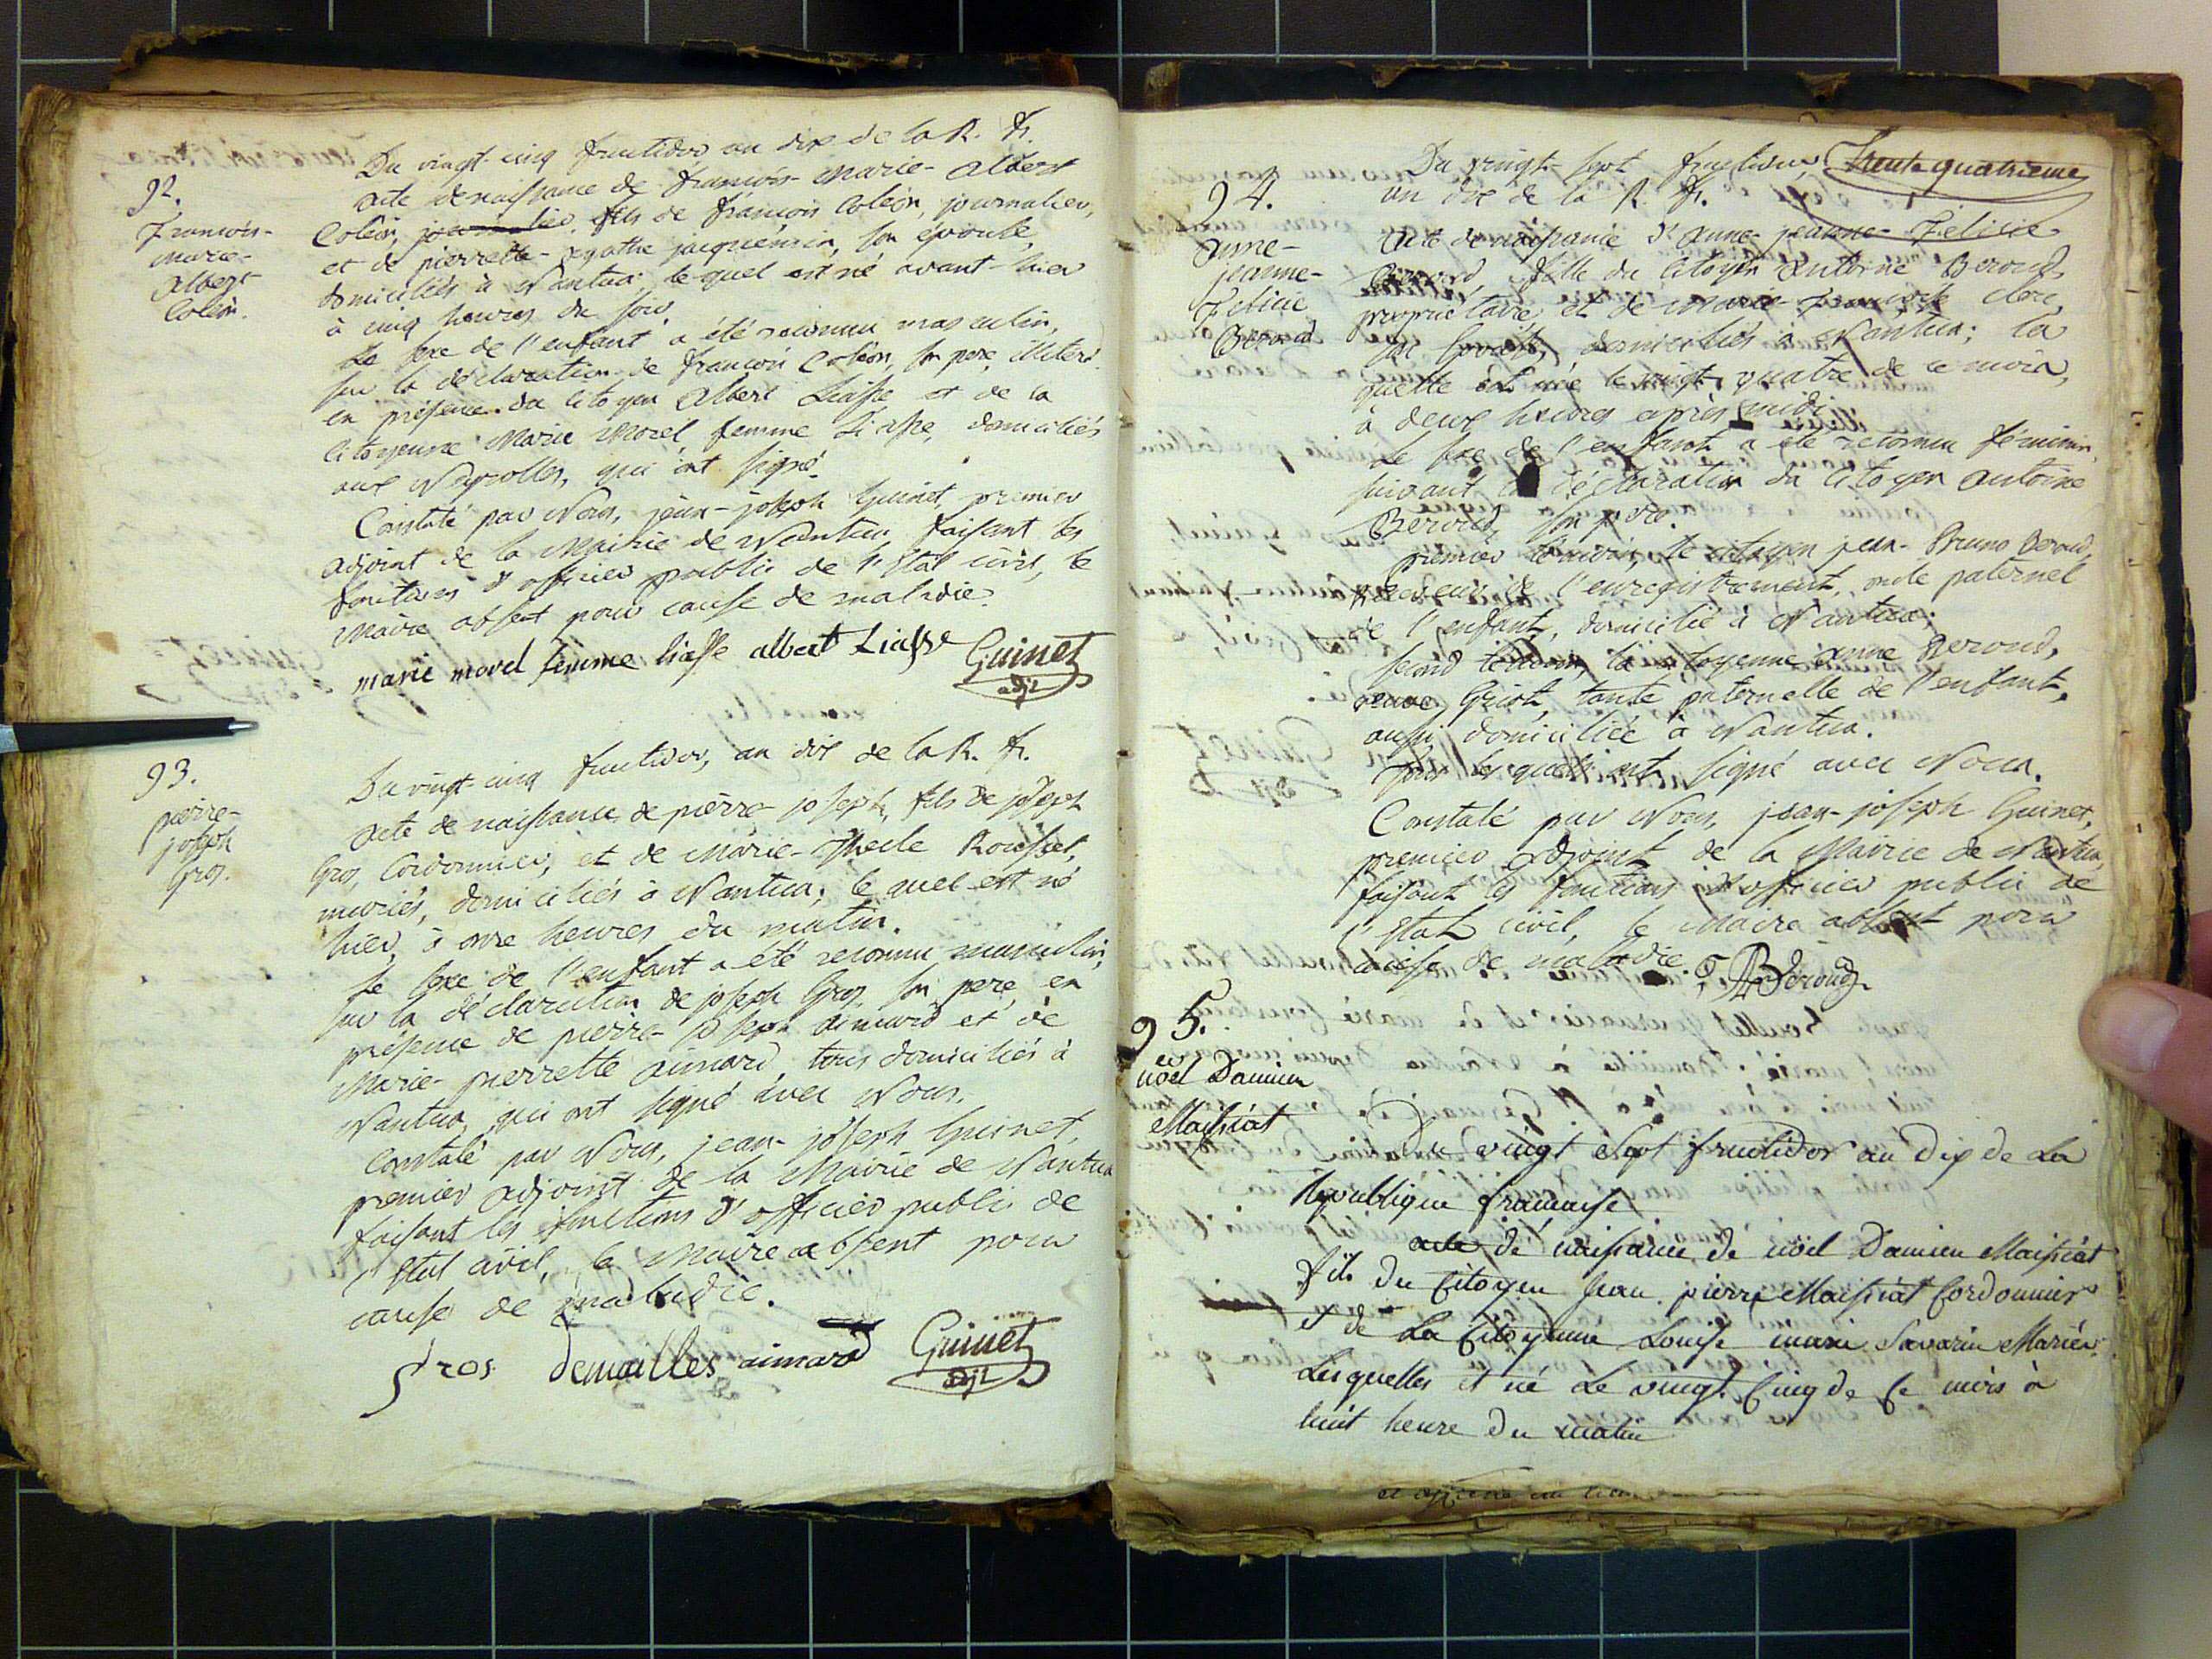 92.
françois-
marie-
albert
Coléon.
Du vingt-cinq fructidor an dix de la R. fr.
acte de naissance de françois-marie-albert
Coléon, journalier, fils de françois Coléon, journalier,
et de pierrette-agathe jacquemin, son épouse,
domiciliés à Nantua; lequel est né avant-hier
à cinq heures du soir.
Le sexe de l'enfant a été reconnu masculin,
sur la déclaration de françois Coléon, son pere, illiteré
en présence du citoyen Albert Liasse et de la
citoyenne Marie Morel femme Liasse, domiciliés
aux Neyrolles, qui ont signé.
Constaté par Nous, jean-joseph Guinet, premier
adjoint de la Mairie de Nantua faisant les
fonctions d'officier public de l'Etat civil, le
Maire absent pour cause de maladie.
marie morel femme liasse albert Liasse Guinet
adjt
93.
pierre-
joseph
Gros.
Du vingt-cinq fructidor, an dix de la R. fr.
acte de naissance de pierre-joseph, fils de joseph
Gros, Cordonnier, et de Marie- Rousset,
mariés, domiciliés à Nantua; lequel est né
hier, à onze heures du matin.
Le sexe de l'enfant a été reconnu masculin,
sur la déclaration de joseph Gros, son pere, en
présence de pierre-joseph aimard et de
Marie-pierrette aimard, tous domiciliés à
Nantua, qui ont signé avec Nous.
Constaté par Nous, jean-joseph Guinet,
premier adjoint de la Mairie de Nantua
faisant les fonctions d'officier public de
l'Etat civil, le Maire absent pour
cause de maladie.
gros aimard Guinet
adjt
Trente quatrieme
94.
anne-
jeanne-
Felicie
Beroud
Du vingt-sept fructidor,
an dix de la R. fr.
Acte de naissance d'anne-jeanne-Felicie
Beroud, fille du citoyen antoine Beroud,
propriétaire et de marie-françoise
son épouse, domiciliés à Nantua; la
quelle est née le vingt-quatre de ce mois,
à deux heures après midi.
Le sexe de l'enfant a été reconnu féminin,
suivant la déclaration du citoyen antoine
Beroud, son pere.
premier témoin, le citoyen jean-Bruno Beroud,
receveur de l'enregistrement, oncle paternel
de l'enfant, domicilié à Nantua;
second témoin, la citoyenne anne Beroud,
veuve tante paternelle de l'enfant,
aussi domiciliée à Nantua.
tous lesquels ont signé avec Nous.
Constaté par Nous, jean-joseph Guinet,
premier adjoint de la Mairie de Nantua,
faisant les fonctions d'officier public de
l'Etat civil, le Maire absent pour
cause de maladie.
Beroud
95.
noël Damien
Maissiat
Du vingt Sept fructidor an dix de La
Republique française
acte de naissance de noël Damien Maissiat
fils du Citoyen Jean pierre Maissiat Cordonnier
et de La Citoyenne Louise marie Savarin Mariés
Lesquelles et né Le vingt Cinq de Ce mois à
huit heure du matin